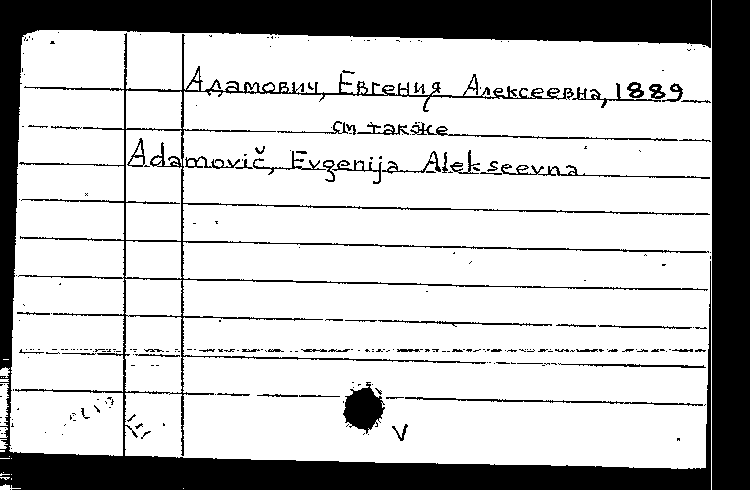 Адамович, Евгения Алексеевна, 1889
см также
Adamovič, Evgenija Alekseevna
V